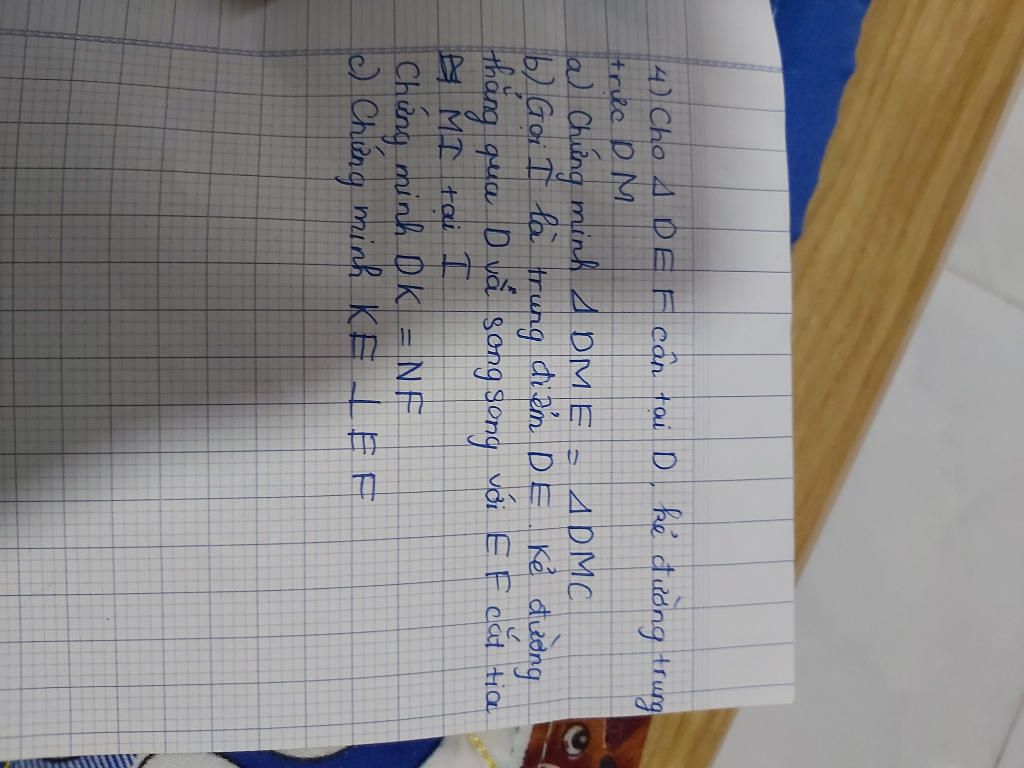 4) Cho Δ DEF cân tại D, kẻ đường trung
trực DM
a) Chứng minh Δ DME = Δ DMC
b) Gọi I là trung điểm DE. Kẻ đường
thẳng qua D và song song với EF cắt tia
MI tại I
Chứng minh DK = NF
c) Chứng minh KE ⊥ EF